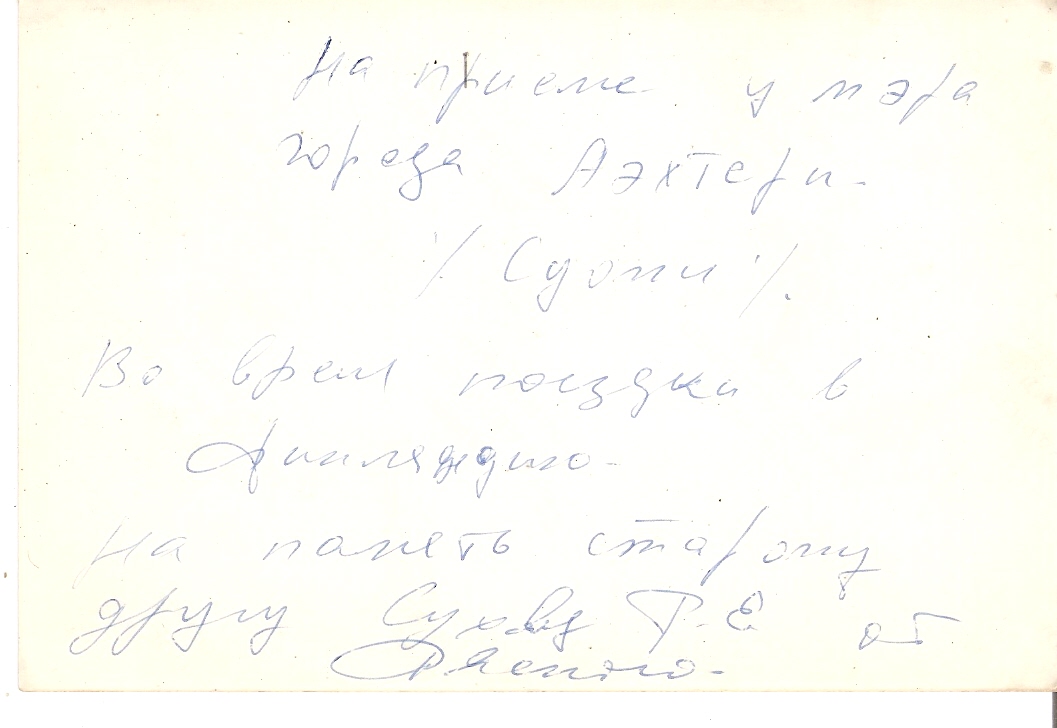 На приеме у мэра
города Аэхтери.
/ Суоми /.
Во время поездки в
Финляндию.
На память старому
другу Р. Е. от